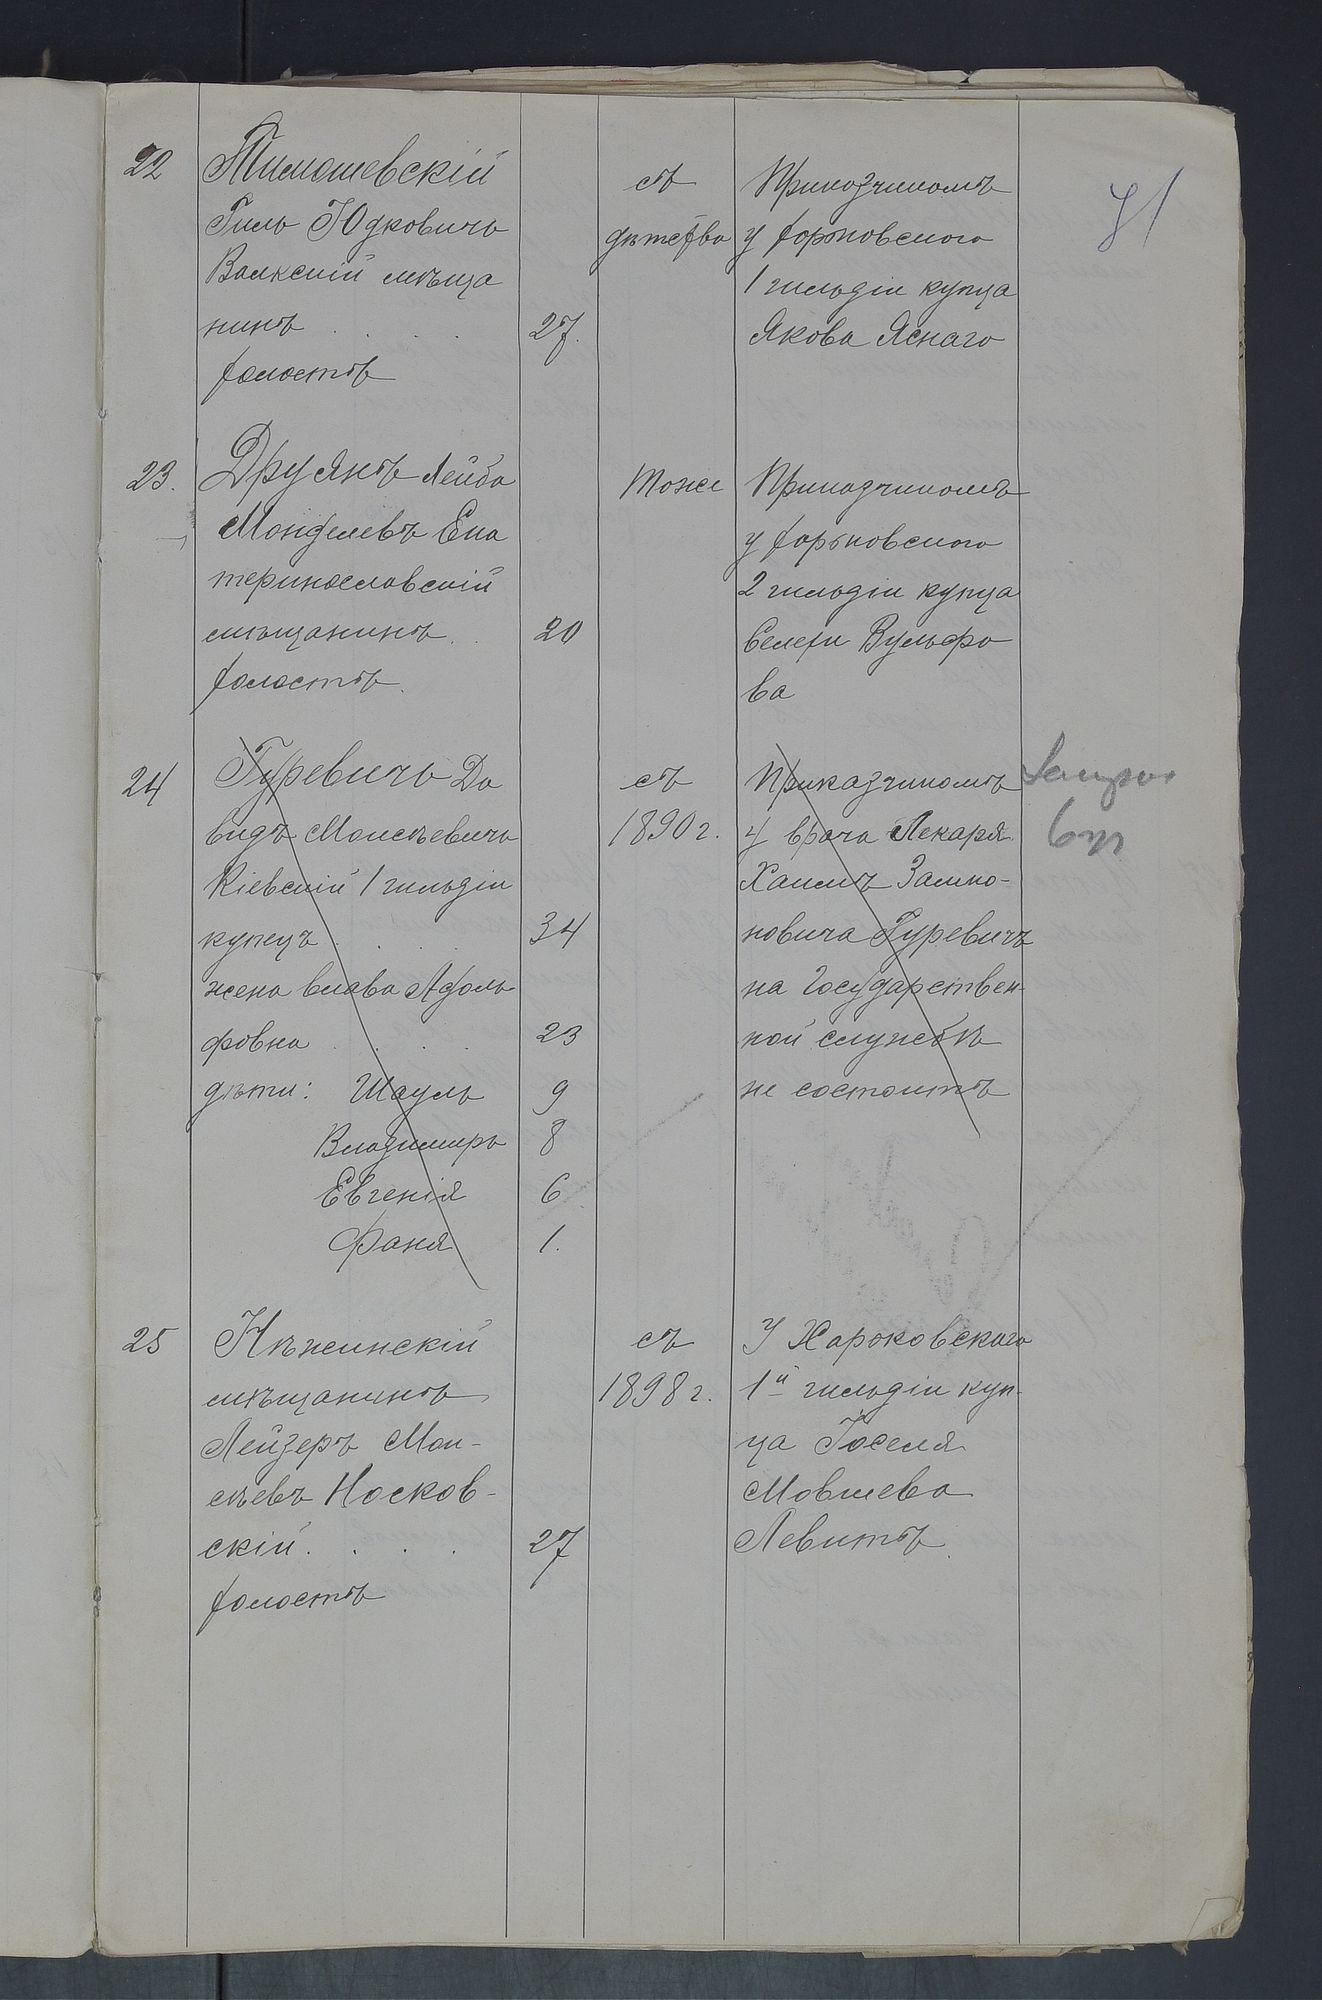 71
22
Тимошевскій
Гиль Юдковичъ
Валкскій мѣща
нинъ . . . .
холостъ
27.
съ
дѣтства
Приказчикомъ
у харьковскаго
1 гильдіи купца
Якова Яснаго
23.
Друянъ Лейба
Менделевъ Ека
теринославскій
мѣщанинъ . .
холостъ.
20
тоже
Приказчикомъ
у харьковскаго
2 гильдіи купца
Вульфо
ва
24
Гуревичъ Да
видъ Моисѣевичъ
Кіевскій 1 гильдіи
купецъ . . . .
жена Слава Адоль
фовна . . . .
дѣти: Шауль
Владимиръ
Евгенія
Фаня
34
23
9
8
6
1.
съ
1890 г.
Приказчикомъ
у врача Лекаря
Хаимъ Залмо-
новича Гуревичъ
на Государствен-
ной службѣ
не состоитъ
25
Нѣжинскій
мѣщанинъ
Лейзеръ Мои-
сѣевъ Носков-
скій. . . .
холостъ
27
съ
1898 г.
У Харьковскаго
1й гильдіи куп-
ца Іоселя
Мовшева
Левитъ